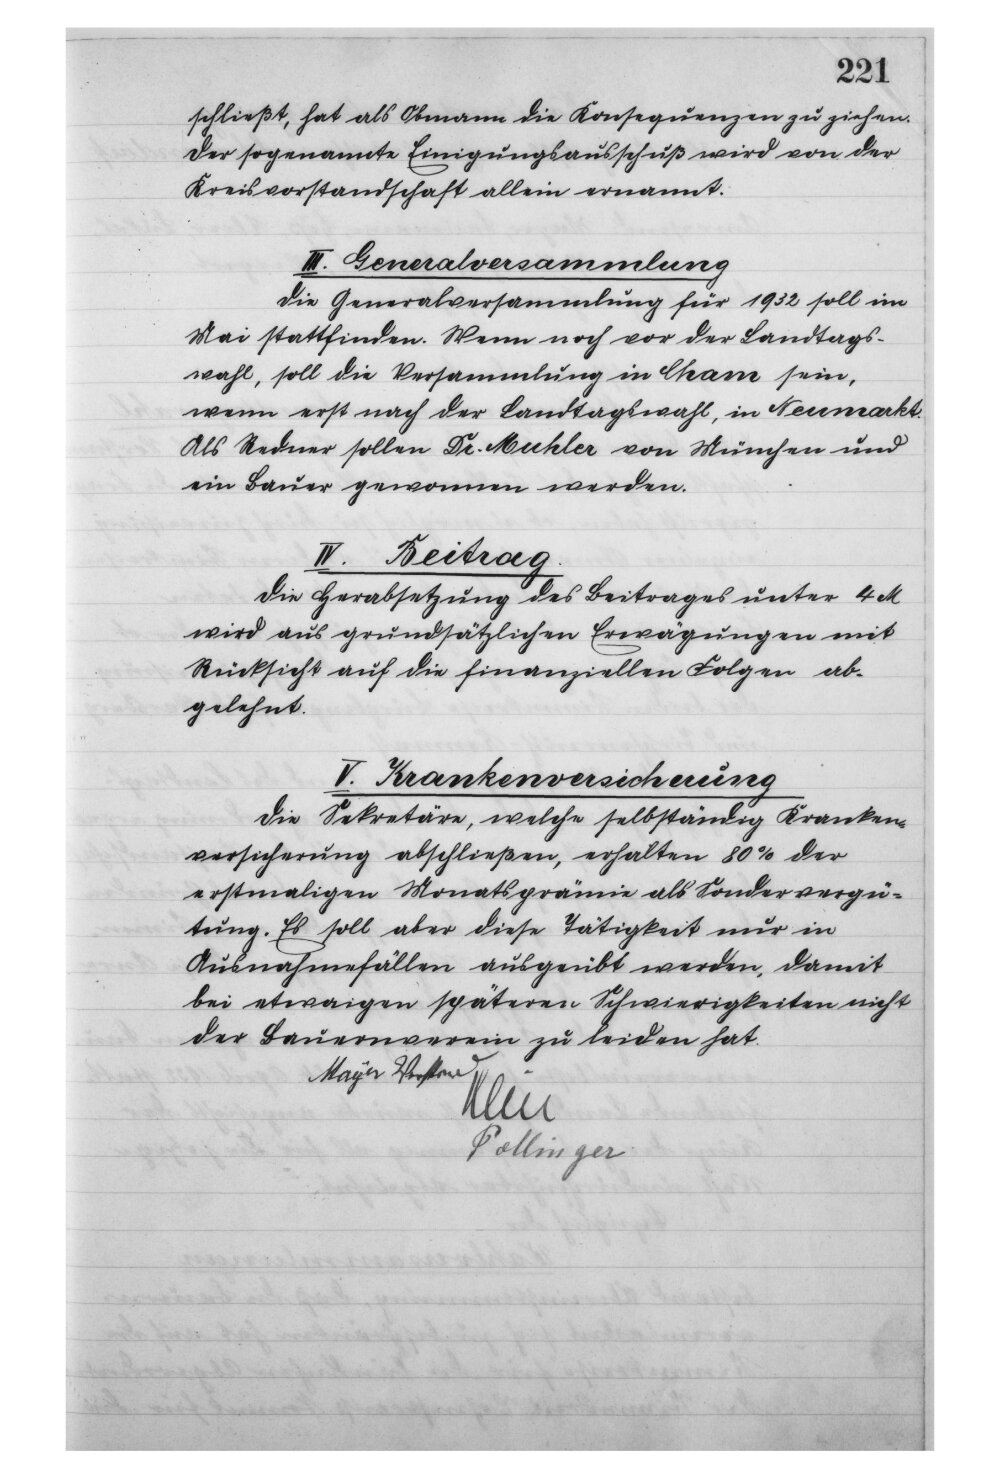 221
schließt, hat als Obmann die Konsequenzen zu ziehen.
Der sogenannte Einigungsausschuß wird von der
Kreisvorstandschaft allein ernannt.
III. Generalversammlung
Die Generalversammlung für 1932 soll im
Mai stattfinden. Wenn noch vor der Landtags-
wahl, soll die Versammlung in Cham sein,
wenn erst nach der Landtagswahl, in Neumarkt.
Als Redner sollen Dr. Muhler von München und
ein Bauer gewonnen werden.
IV. Beitrag.
Die Herabsetzung des Beitrages unter 4 M
wird aus grundsätzlichen Erwägungen mit
Rücksicht auf die finanziellen Folgen ab-
gelehnt.
V. Krankenversicherung
Die Sekretäre, welche selbständig Kranken-
versicherung abschließen, erhalten 80% der
erstmaligen Monatsprämie als Sondervergü-
tung. Es soll aber diese Tätigkeit nur in
Ausnahmefällen ausgeübt werden, damit
bei etwaigen späteren Schwierigkeiten nicht
der Bauernverein zu leiden hat.
Mayer Vorstand
Klein
Pollinger